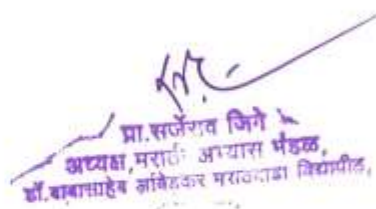 प्रा.सर्जेराव जिगे
अध्यक्ष, मराठी अभ्यास मंडळ,
डॉ.बाबासाहेब आंबेडकर मराठवाडा विद्यापीठ,